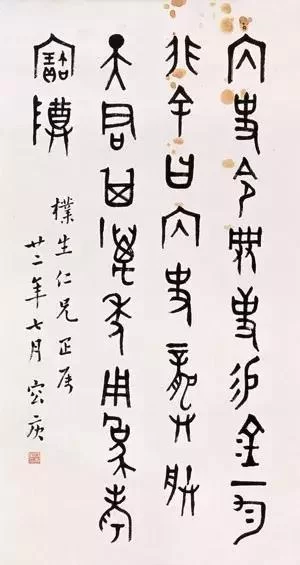 内史令事易金一匀
非余曰内史龏朕
天君其萬年用為考
寶尊
樸生仁兄正屬
廿二年七月容庚